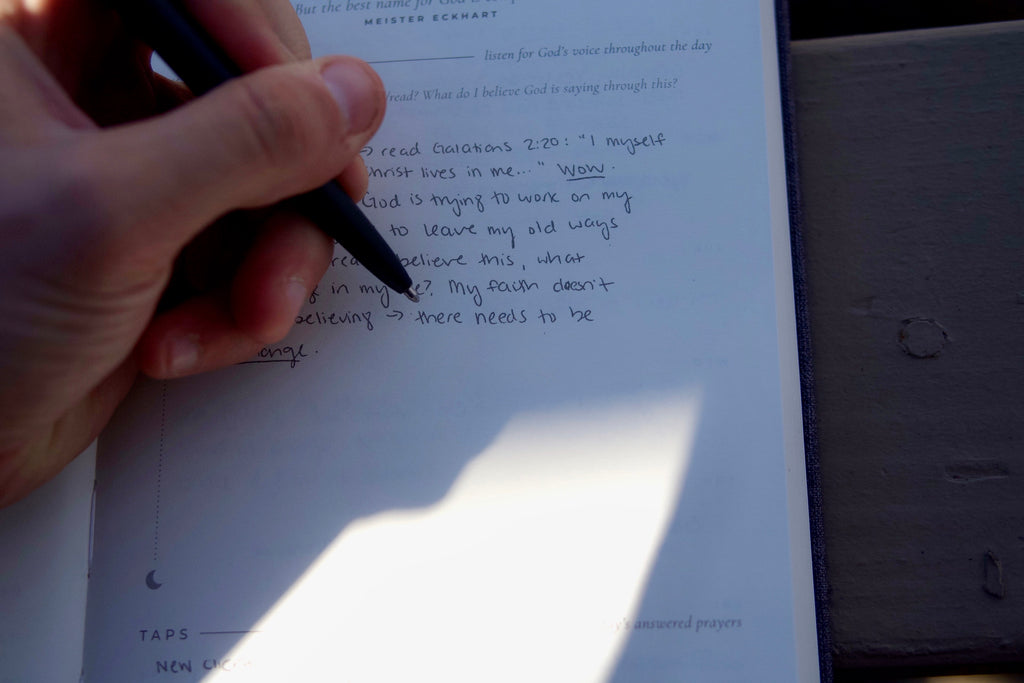 But the best name for God is
MEISTER ECKHART
listen for God's voice throughout the day
read? What do I believe God is saying through this?
→ read Galations 2:20: "I myself
Christ lives in me..." Wow.
God is trying to work on my
to leave my old ways
believe this, what
in my ?. My faith doesn't
believing → there needs to be
TAPS
answered prayers
New